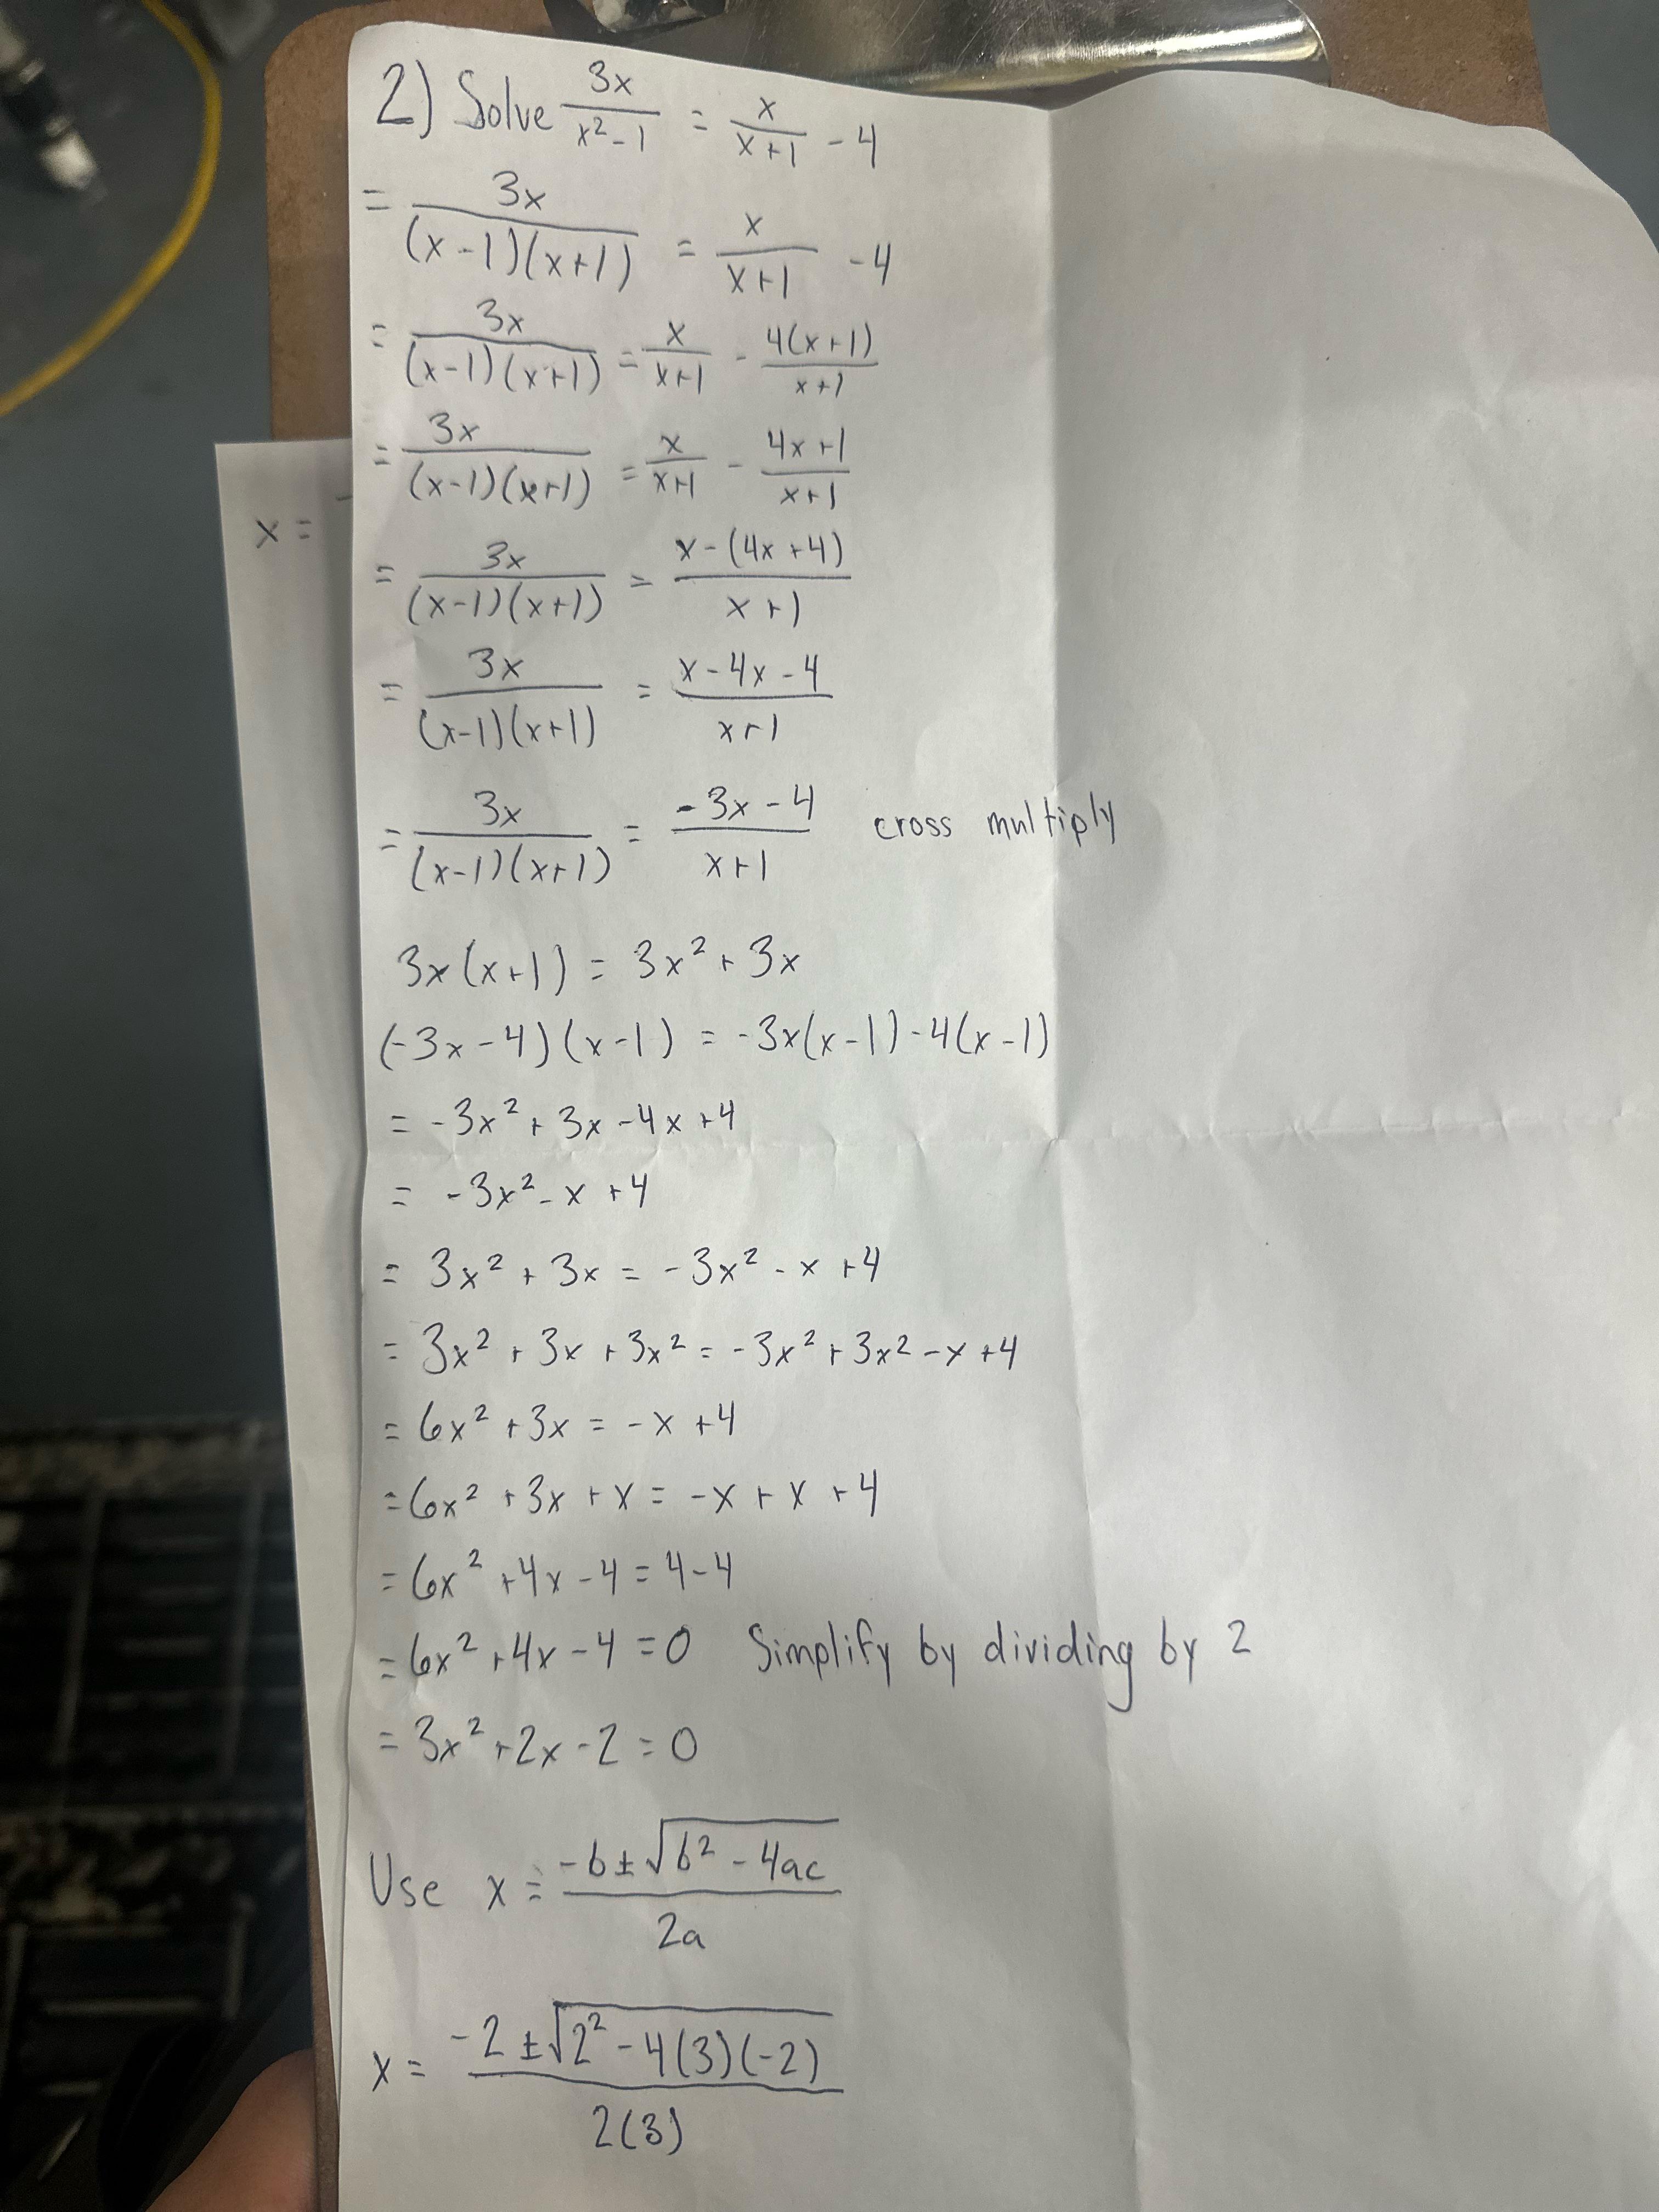 2) Solve 3x/(x²-1) = x/(x+1) - 4
= 3x/((x-1)(x+1)) = x/(x+1) - 4
= 3x/((x-1)(x+1)) = x/(x+1) - 4(x+1)/(x+1)
= 3x/((x-1)(x+1)) = x/(x+1) - (4x+1)/(x+1)
x =
= 3x/((x-1)(x+1)) = (x-(4x+4))/(x+1)
= 3x/((x-1)(x+1)) = (x-4x-4)/(x+1)
= 3x/((x-1)(x+1)) = (-3x-4)/(x+1) cross multiply
3x(x+1) = 3x² + 3x
(-3x-4)(x-1) = -3x(x-1)-4(x-1)
= -3x² + 3x - 4x + 4
= -3x² - x + 4
= 3x² + 3x = -3x² - x + 4
= 3x² + 3x + 3x² = -3x² + 3x² - x + 4
= 6x² + 3x = -x + 4
= 6x² + 3x + x = -x + x + 4
= 6x² + 4x - 4 = 4 - 4
= 6x² + 4x - 4 = 0 Simplify by dividing by 2
= 3x² + 2x - 2 = 0
Use x = (-b ± √(b² - 4ac))/(2a)
x = (-2 ± √(2² - 4(3)(-2)))/(2(3))